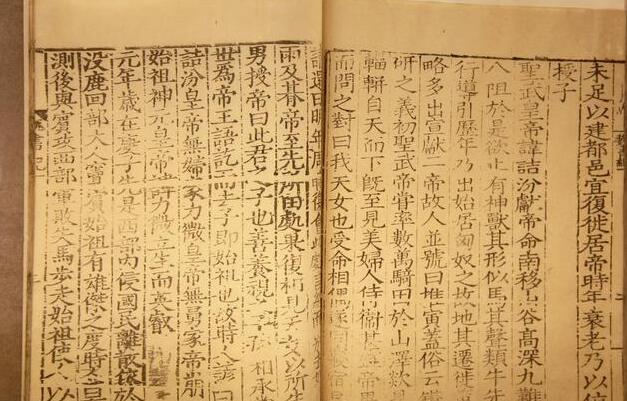 未足以建都邑宜復徙居帝時年衰老乃以位
授子
聖武皇帝諱詰汾獻帝命南移山谷高深九難
八阻於是欲止有神獸其形似馬其聲類牛先
行導引歷年乃出始居匈奴之故地其遷徙
略多出宣獻二帝故人並號曰推寅蓋俗云鑽
研之義初聖武帝嘗率數萬騎田於山澤欻見
輜軿自天而下旣至見美婦人侍衞甚盛帝異
而問之對曰我天女也受命相偶遂同寢宿旦
請還曰明年周時復會此處
兩及朞帝至先所田處果復相見天女以所生
男授帝曰此君之子也善養視之子孫相承
世爲帝王語訖而去子即始祖也故時人諺曰
詰汾皇帝無婦家力微皇帝無舅家帝崩
始祖神元皇帝諱力微立生而英叡
元年歲在庚子先是西部内侵國民離散依於
没鹿回部大人竇賓始祖有雄傑之度時人莫
測後與賓攻西部軍敗失馬步走始祖使人以